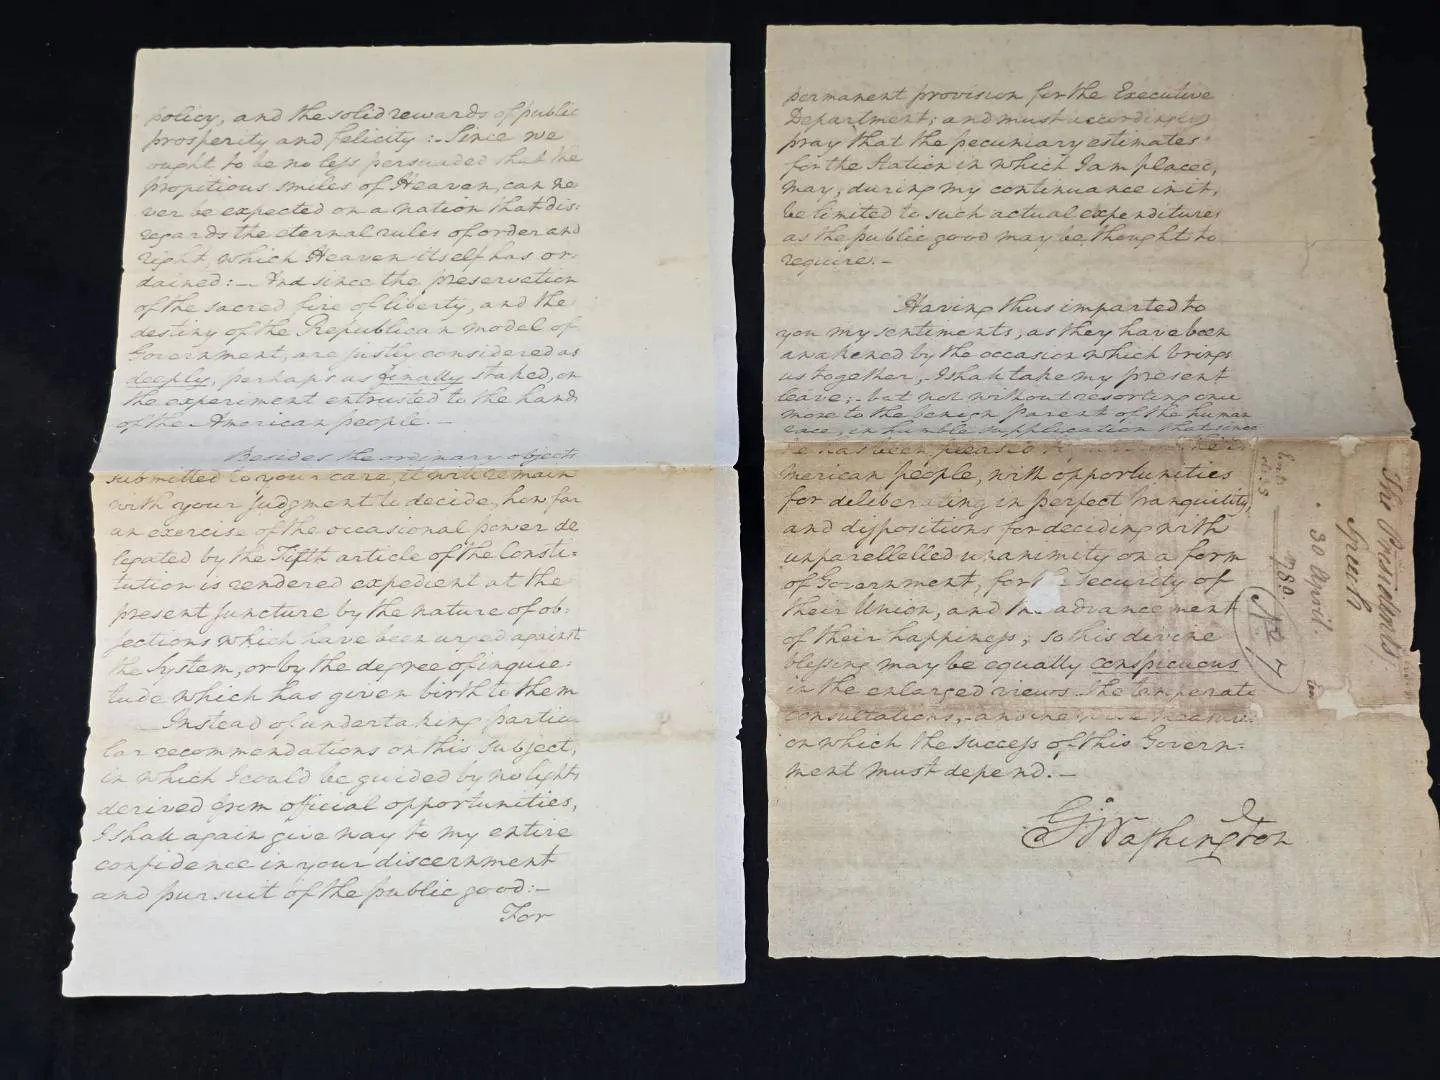 policy, and the solid rewards of public
prosperity and felicity :- Since we
ought to be no less persuaded that the
propitious smiles of Heaven, can ne
ver be expected on a nation that dis:
regards the eternal rules of order and
right, which Heaven itself has or:
dained :- And since the preservation
of the sacred fire of liberty, and the
destiny of the Republican model of
Government, are justly considered as
deeply, perhaps as finally staked, on
the experiment entrusted to the hand
of the American people. -
Besides the ordinary objects
submitted to your care, it will remain
with your judgment to decide, how far
an exercise of the occasional power de
legated by the Fifth article of the Consti:
tution is rendered expedient at the
present juncture by the nature of ob:
jections which have been urged against
the System, or by the degree of inquie:
tude which has given birth to them
Instead of undertaking particu
lar recommendations on this subject,
in which I could be guided by no lights
derived from official opportunities,
I shall again give way to my entire
confidence in your discernment
and pursuit of the public good :-
For
permanent provision for the Executive
Department; and must accordingly
pray that the pecuniary estimates
for the Station in which I am placed,
may, during my continuance in it,
be limited to such actual expenditures
as the public good may be thought to
require. -
Having thus imparted to
you my sentiments, as they have been
awakened by the occasion which brings
us together, I shall take my present
leave; - but not without resorting once
more to the benign Parent of the human
race, in humble supplication that since
he has been pleased
merican people, with opportunities
for deliberating in perfect tranquility,
and dispositions for deciding with
unparellelled unanimity on a form
of Government, for the Security of
their Union, and the advancement
of their happiness; so this divine
blessing may be equally conspicuous
in the enlarged views the temperate
consultations, - and the wise measures
on which the success of this Govern:
ment must depend. -
G Washington
The Presidents
Speech
30 April.